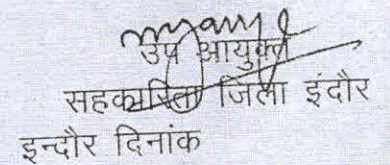 उप आयुक्त
सहकारिता जिला इंदौर
इन्दौर दिनांक